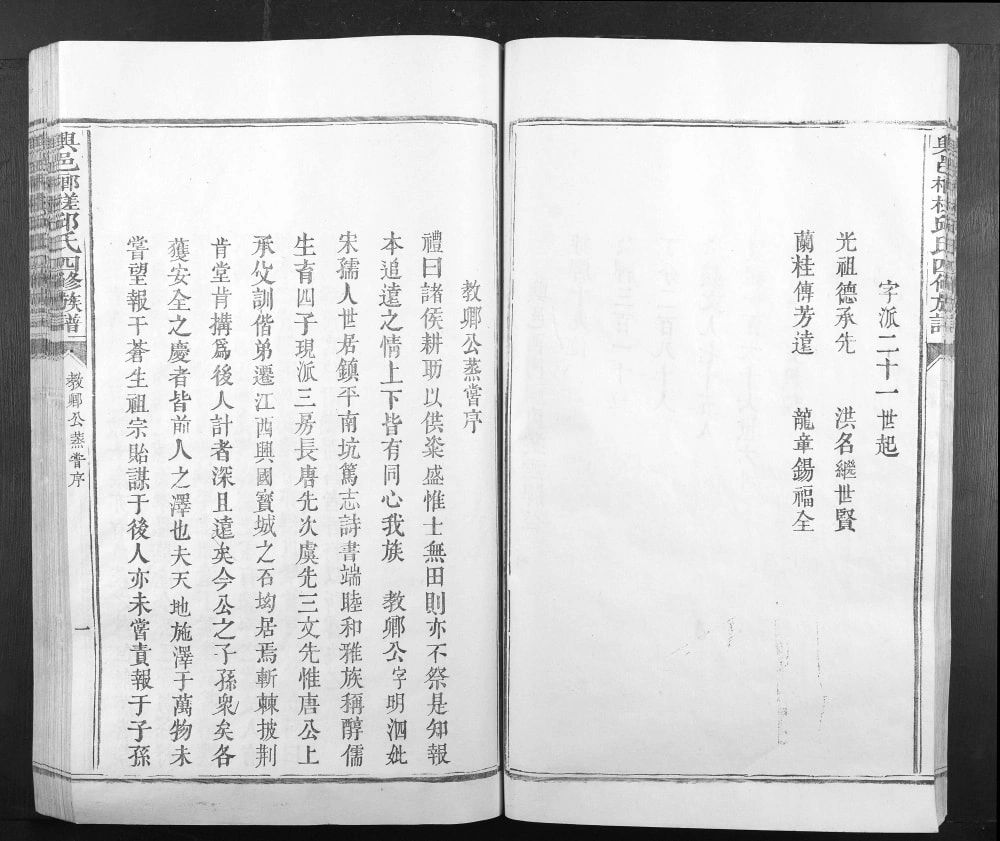 字派二十一世起
光祖德承先 洪名繼世賢
蘭桂傳芳遠 龍章錫福全
教卿公蒸嘗序
禮曰諸侯耕耡以供粢盛惟士無田則亦不祭是知報
本追遠之情上下皆有同心我族 教卿公字明泗妣
宋孺人世居鎮平南坑篤志詩書端睦和雅族稱醇儒
生育四子現派三房長唐先次虞先三文先惟唐公上
承父訓偕弟遷江西興國寶城之石坳居焉斬棘披荆
肯堂肯搆爲後人計者深且遠矣今公之子孫衆矣各
獲安全之慶者皆前人之澤也夫天地施澤于萬物未
嘗望報于蒼生祖宗貽謀于後人亦未嘗責報于子孫
興邑槎邱氏四修族譜
教卿公蒸嘗序
一